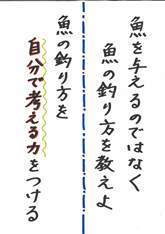 魚を与えるのではなく
魚の釣り方を教えよ
魚の釣り方を
自分で考える力をつける